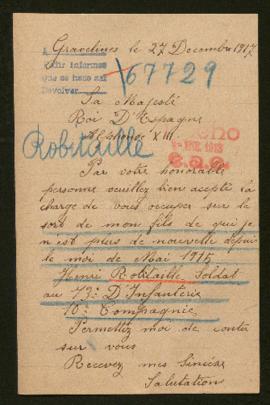 Gravelines le 27 Decembre 1917
Pedir informes
que se haga así
Devolver
67729
Sa Majesté
Roi D'Espagne
Alphonse XIII.
ENE. 1918
Robitaille
Par votre honorable
personne veuillez bien accepté la
charge de vous occuper sur le
sort de mon fils de qui je
n'est plus de nouvelle depuis
le moi de Mai 1915
Henri Robitaille Soldat
au 73e D'Infanterie
10e Compagnie
Permettez moi de conter
sur vous
Recevez mes Sincère
Salutation